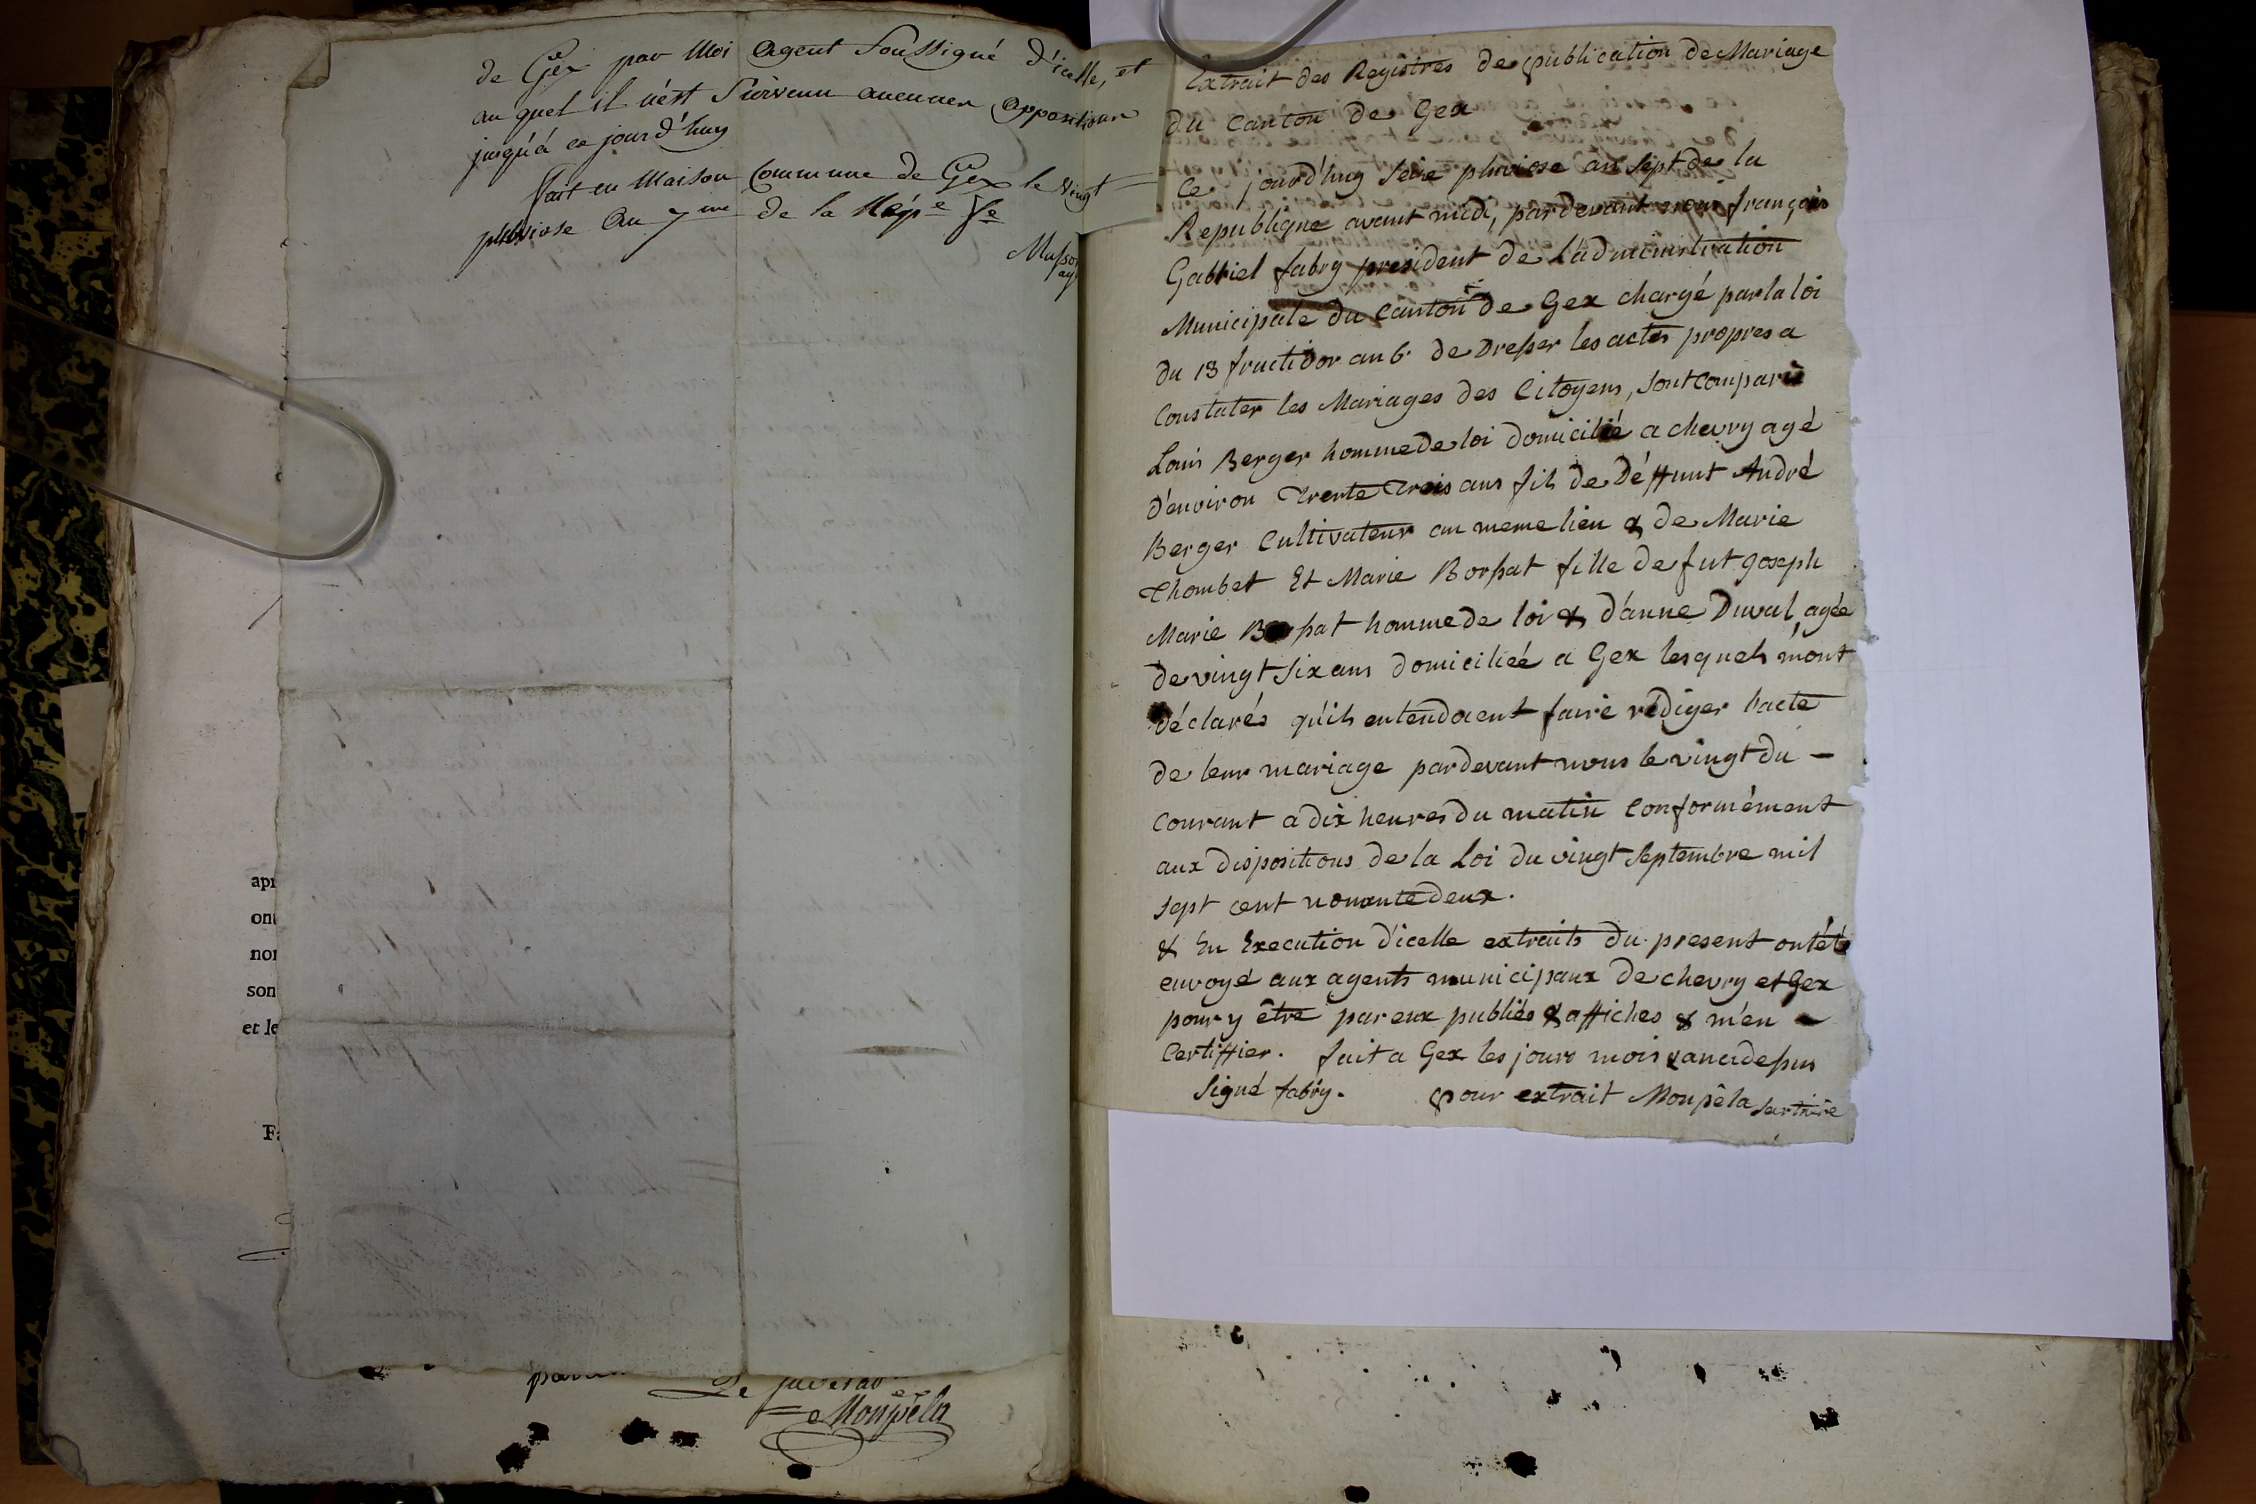 de Gex par Moi agent Soussigné d'icelle, et
au quel il n'est Survenu aucunes oppositions
jusqu'á ce jourd'huy
fait en Maison Commune de Gex le vingt
pluviose An 7me de la Rép.e f.e
apr
ont
nor
son
et le
Monpela
Extrait des Registres de publication de Mariage
du Canton de Gex
Ce jourd'huy seise pluviose an sept de la
Republique avant midi, pardevant nous françois
Gabriel fabry president de L'administration
Municipale du Canton de Gex chargé par la loi
du 13 fructidor an 6. de Dresser les actes propres a
Constater les Mariages des Citoyens, sont comparu
Louis Berger homme de loi domicilié a chevry agé
d'environ trente trois ans fils de Déffunt André
Berger Cultivateur au meme lieu & de Marie
Thombet Et Marie Borssat fille de fut Joseph
Marie Borssat homme de loi & d'anne Duval, agée
de vingt six ans domiciliée a Gex lesquels m'ont
déclarés qu'ils entendoient faire rédiger l'acte
de leur mariage pardevant nous le vingt du —
Courant a dix heures du matin Conformément
aux dispositions de la Loi du vingt septembre mil
sept cent nonante deux.
& En Execution d'icelle extraits du present ont été
envoyé aux agents municipaux de chevry et Gex
pour y être par eux publiés & affiches & m'en —
Certiffier. fait a Gex les jours mois & an cidessus
Signé fabry. pour extrait Monpêla